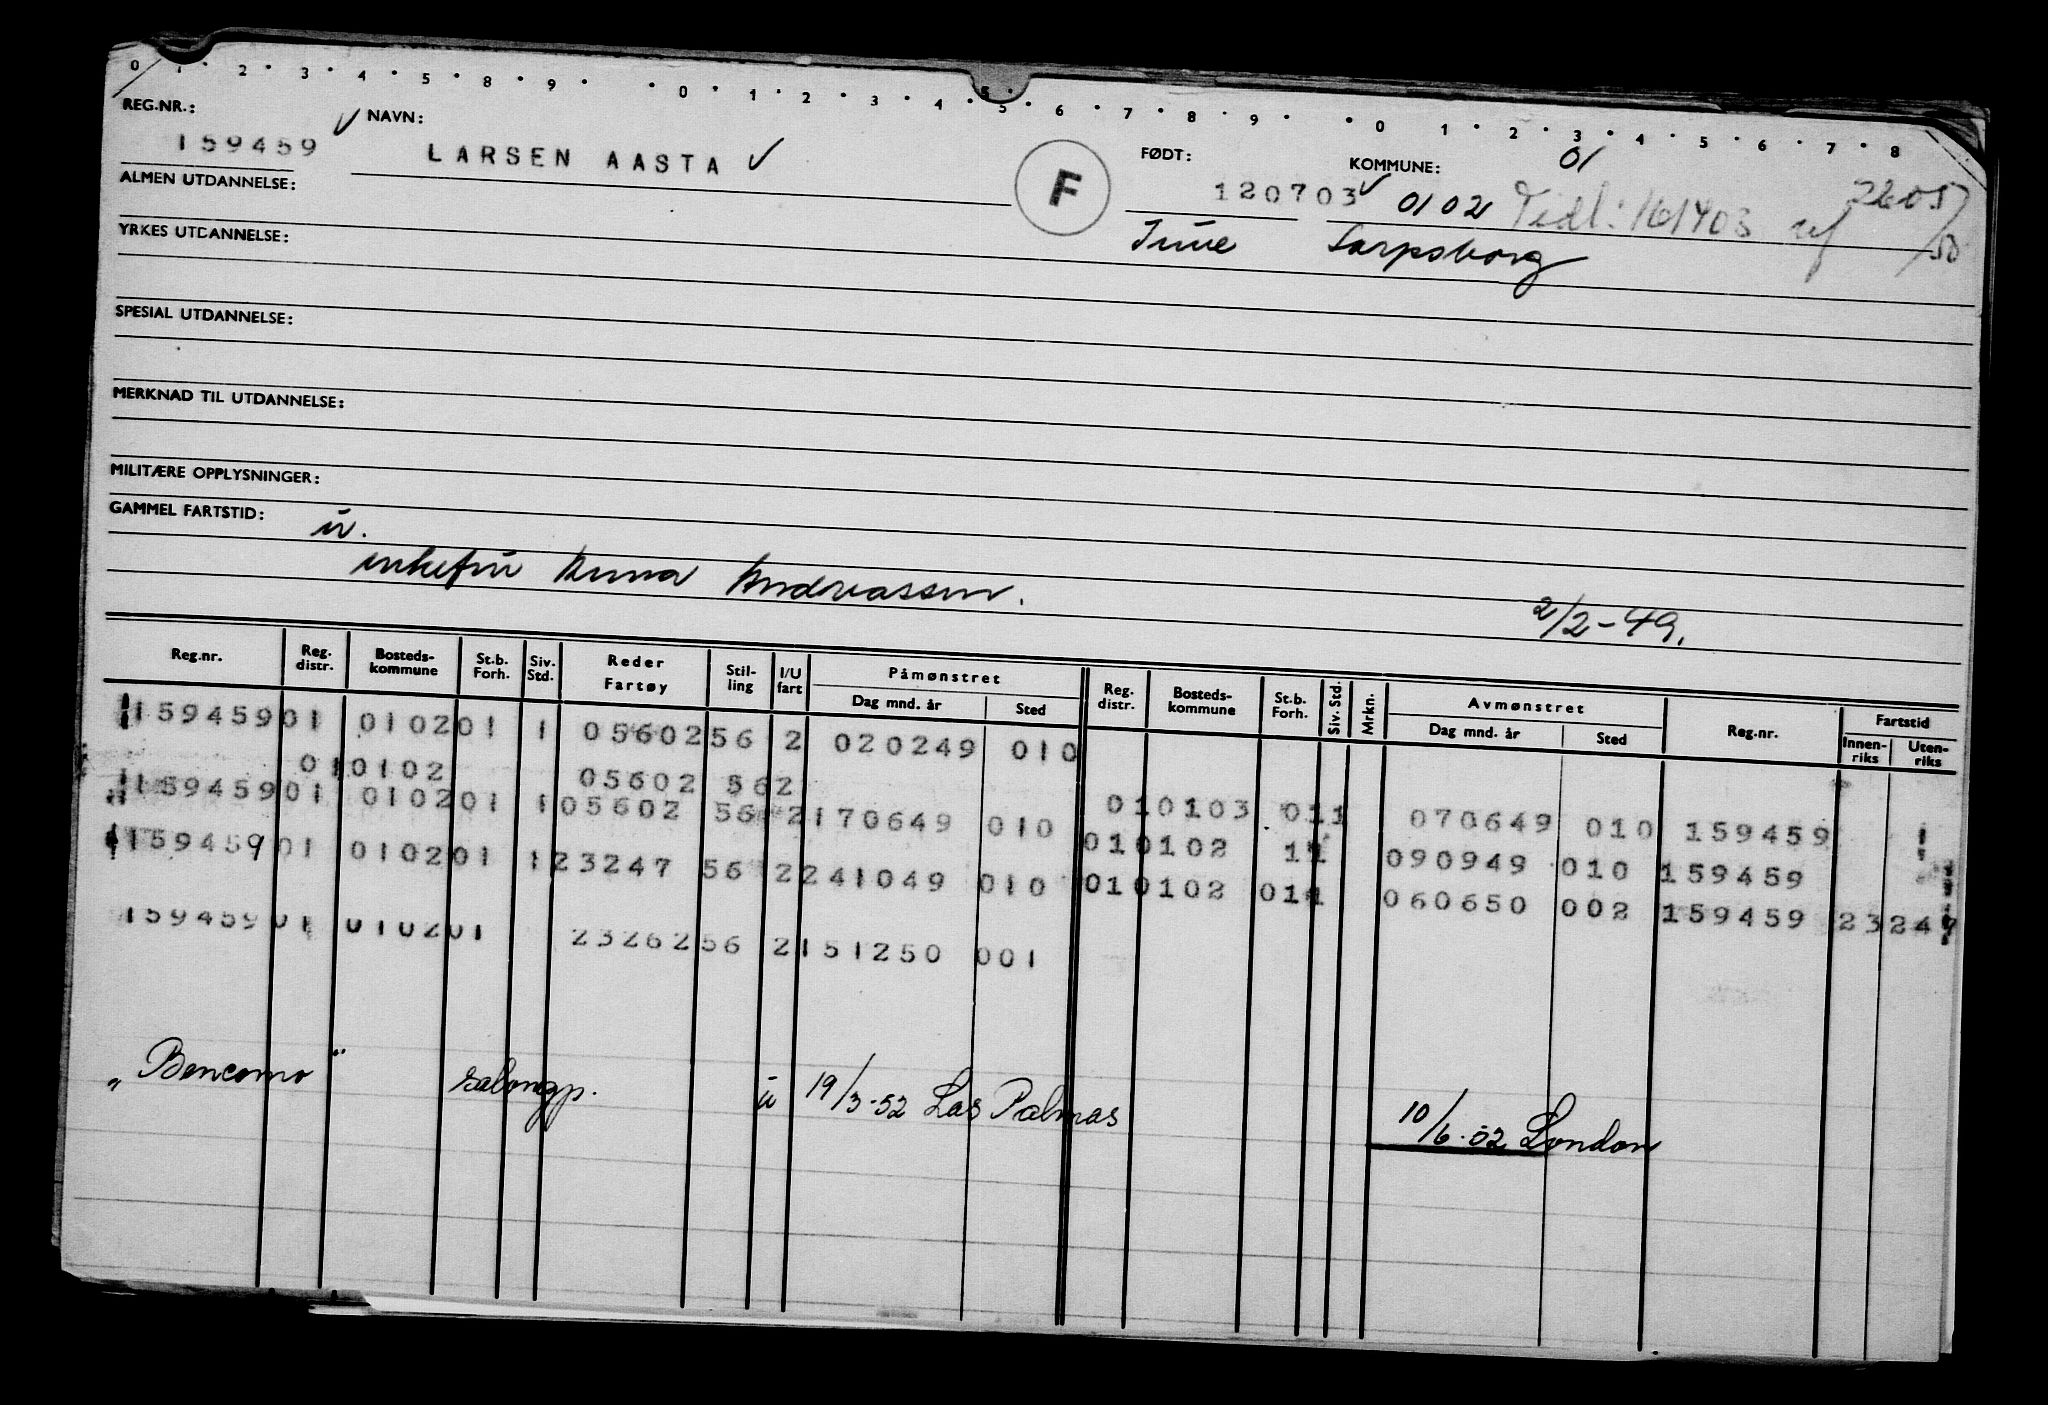 0 1 2 3 4 5 8 9 0 1 2 3 4 5 6 7 8 9 0 1 2 3 4 5 6 7 8
REG.NR.: NAVN: FØDT: KOMMUNE: 01
159459 LARSEN AASTA F 120703 0102 Tidl: 161403
ALMEN UTDANNELSE:
Tune Sarpsborg
YRKES UTDANNELSE:
SPESIAL UTDANNELSE:
MERKNAD TIL UTDANNELSE:
MILITÆRE OPPLYSNINGER:
GAMMEL FARTSTID: u.
enkefru Anna Andreassen. 2/2-49.
Reg.nr. Reg. distr. Bosteds-kommune St.b. Forh. Siv. Std. Reder Fartøy Stil-ling I/U fart Påmønstret Dag mnd. år Sted Reg. distr. Bosteds-kommune St.b. Forh. Siv. Std. Mrkn. Avmønstret Dag mnd. år Sted Reg.nr. Fartstid Innen-riks Uten-riks
159459 01 0102 01 1 05602 56 2 020249 010
010102 05602 562 010103 011 070649 010 159459
159459 01 0102 01 1 05602 56 2 170649 010 010102 11 090949 010 159459
159459 01 0102 01 1 23247 56 2 241049 010 010102 011 060650 002 159459 23247
159459 01 0102 01 23262 56 2 151250 001
"Bencomo" salongp. u 19/3-52 Las Palmas 10/6-52 London